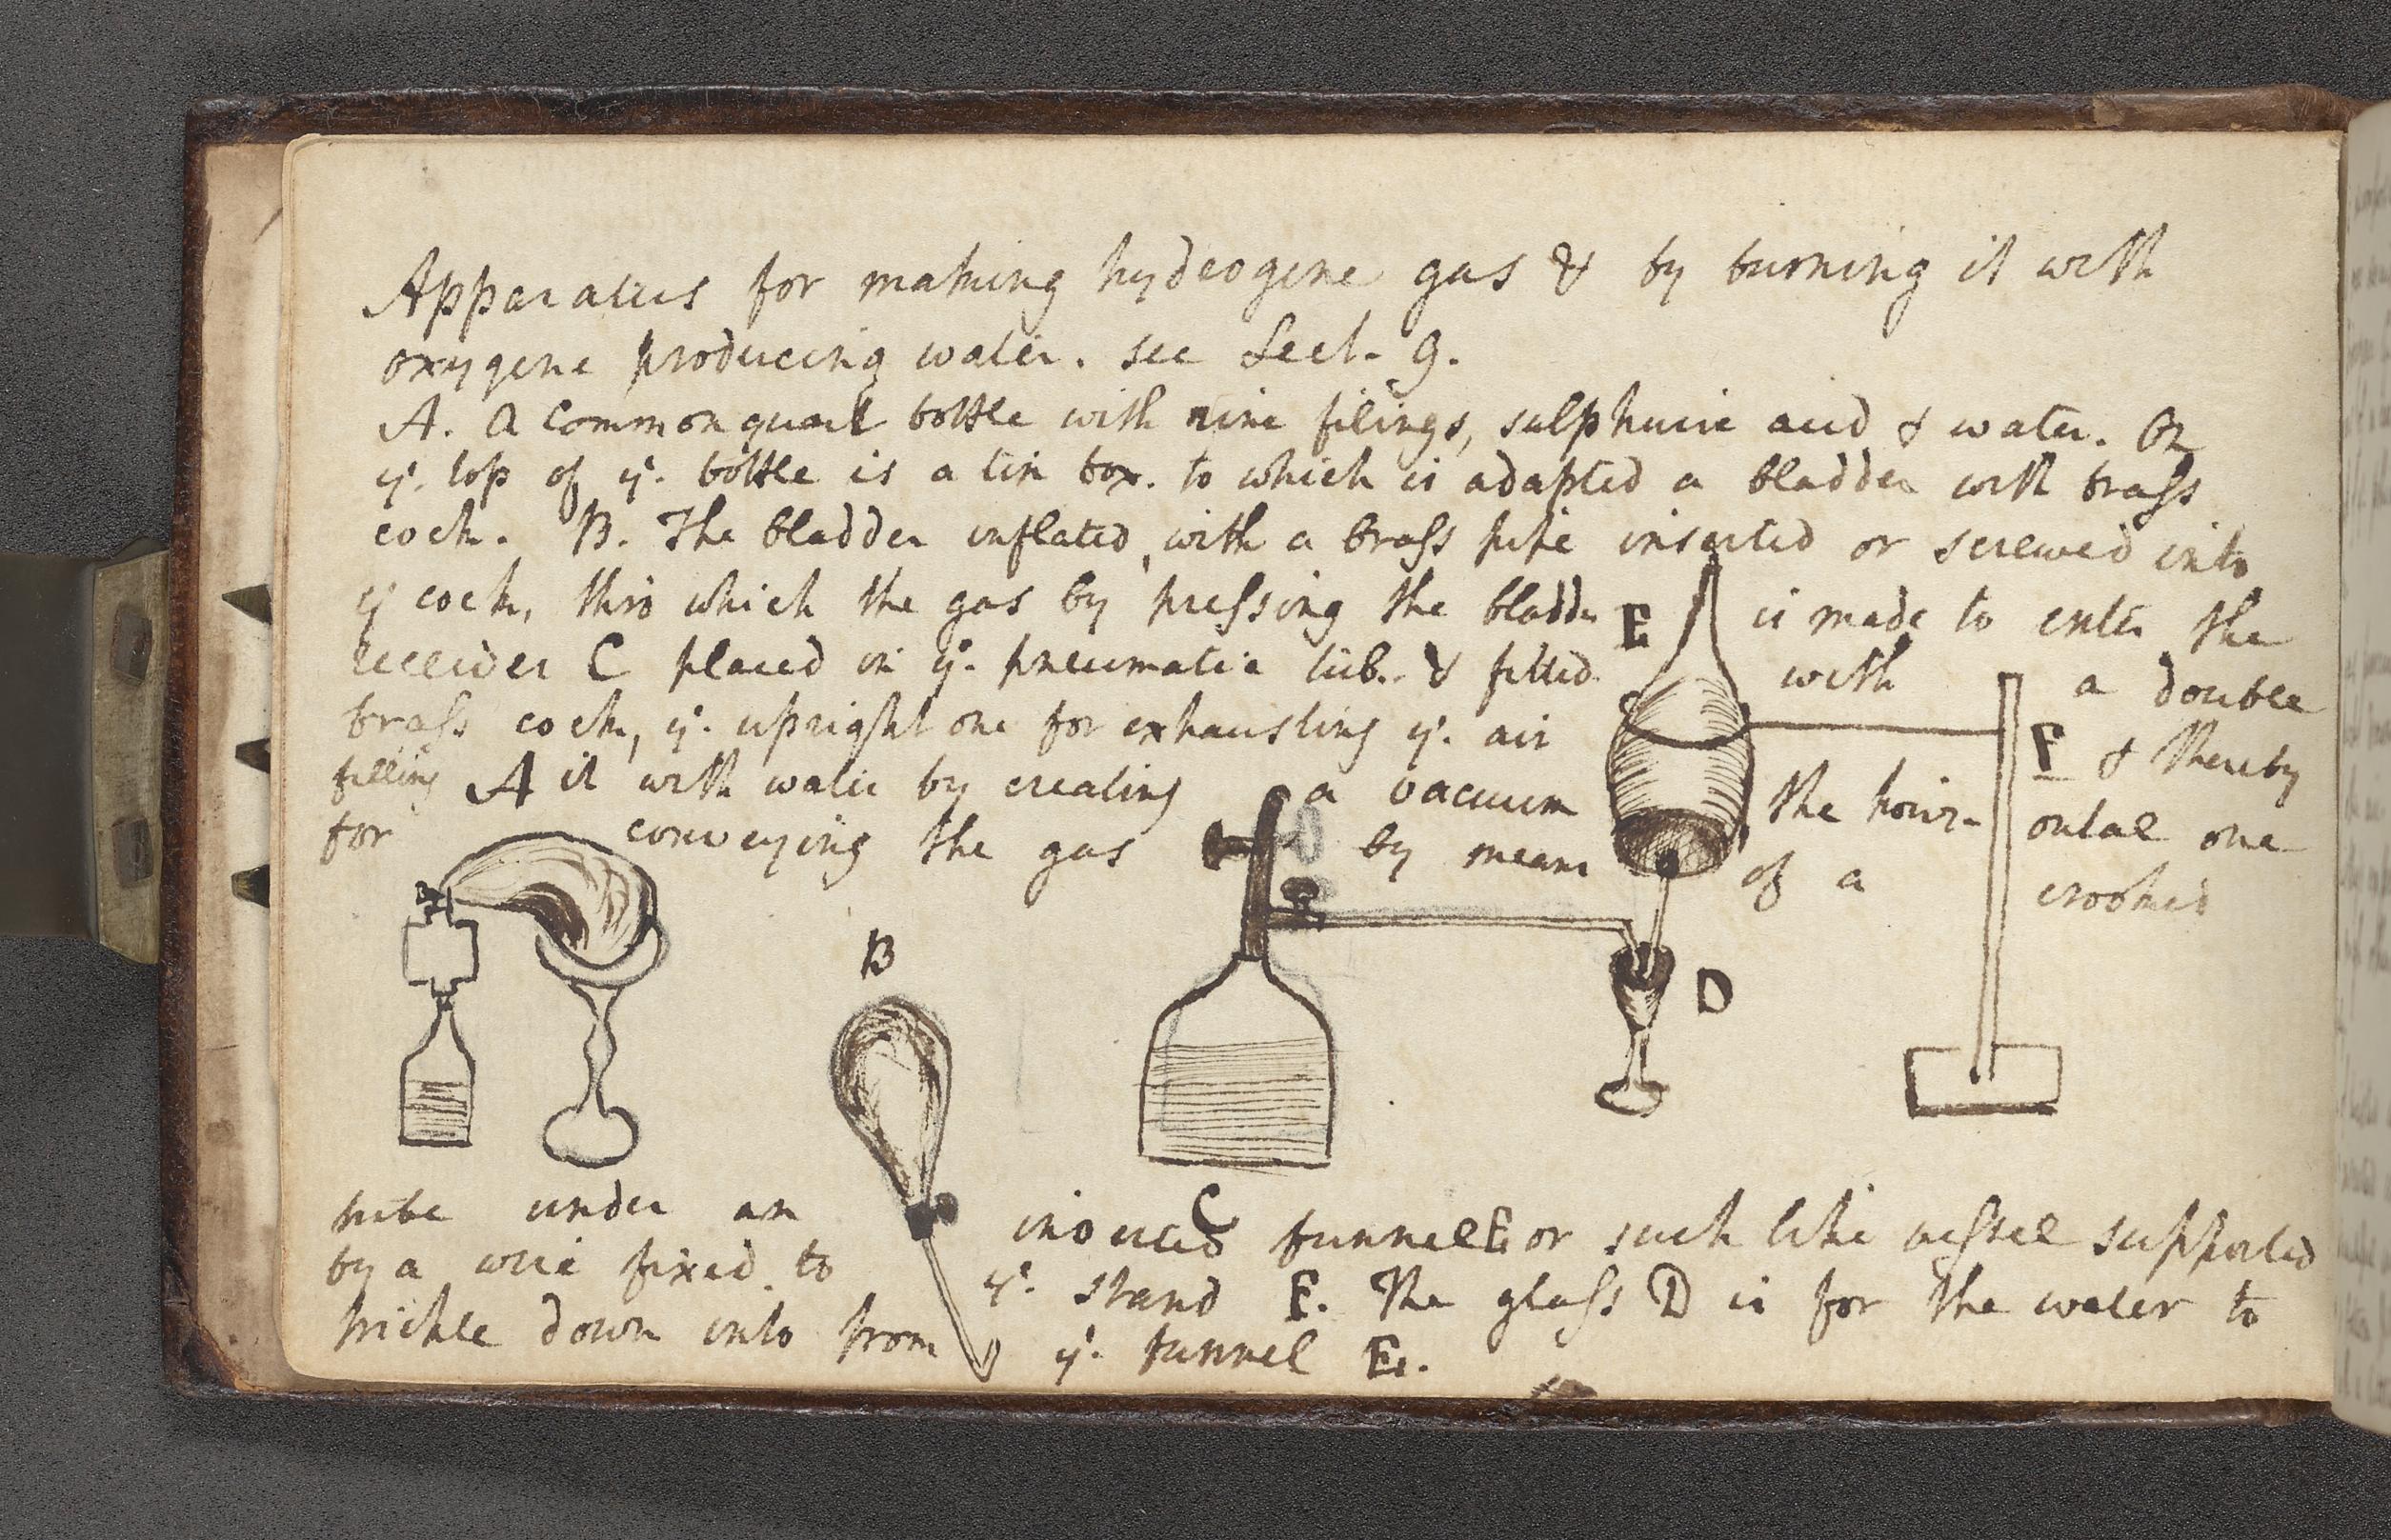 Apparatus for making hydrogene gas & by burning it with
oxygene producing water. see Lect. 9.
A. a common quart bottle with zinc filings, sulphuric acid & water. On
yͤ. top of yͤ. bottle is a tin box. to which is adapted a bladder with braſs
cock. B. The bladder inflated, with a braſs pipe inserted or screwed into
yͤ cock, thro which the gas by preſsing the bladder E is made to enter the
receiver C placed in yͤ. pneumatic tub. & fitted with a double
braſs cock, yͤ. upright one for exhausting yͤ. air F & thereby
filling A it with water by creating a vacuum the horiz-ontal one
for conveying the gas by means of a crooked
B
D
tube under an inverted funnel E or such like veſsel supported
C
by a wire fixed to yͤ. stand F. The glaſs D is for the water to
trickle down into from yͤ. funnel E.